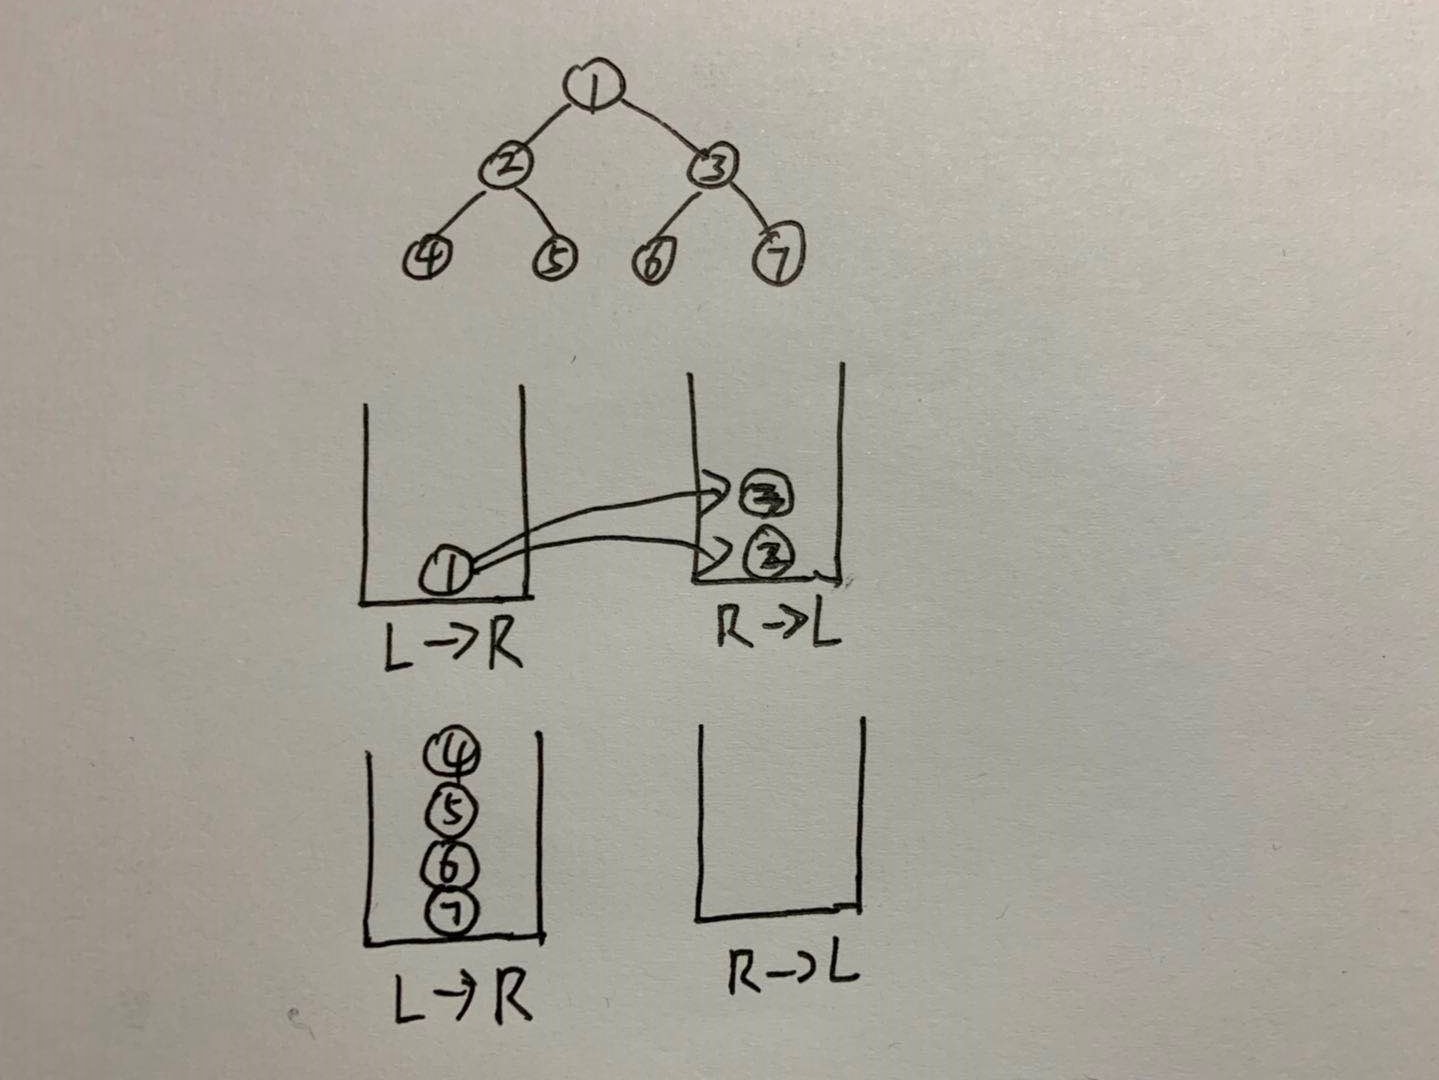 ①
② ③
④ ⑤ ⑥ ⑦
③
① ②
L→R R→L
④
⑤
⑥
⑦
L→R R→L